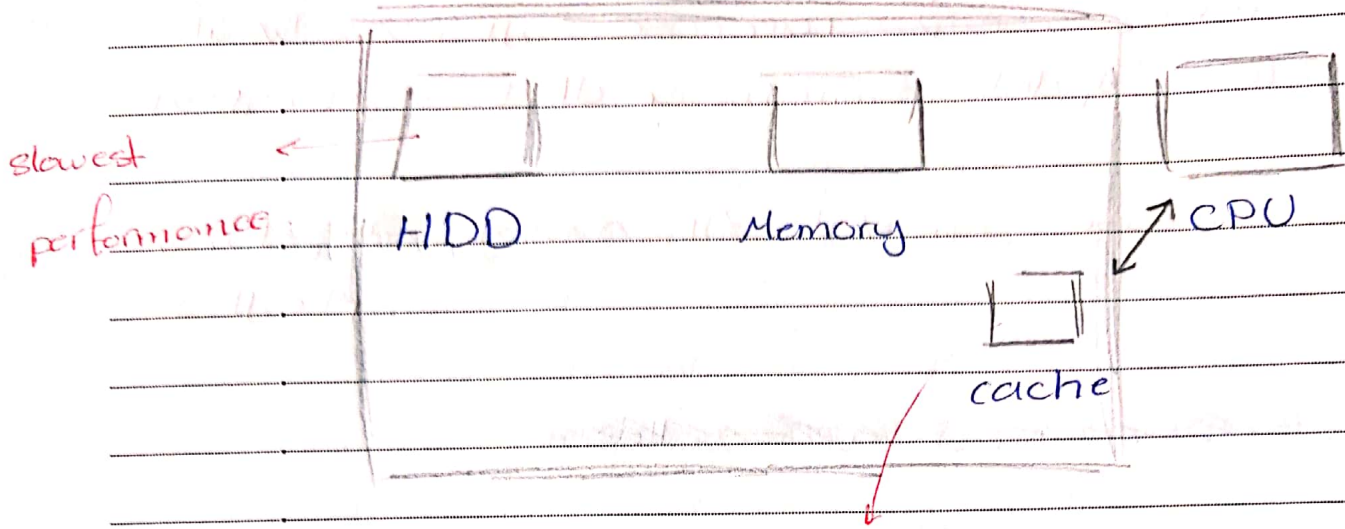 slowest
performance
HDD
Memory
CPU
cache